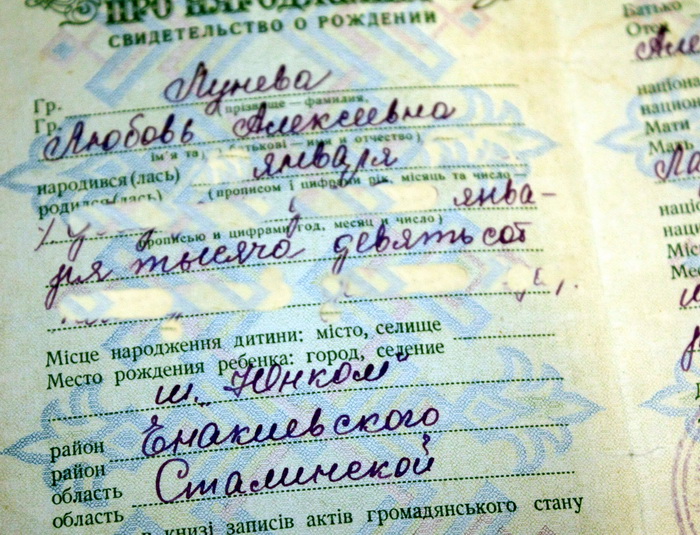 ПРО НАРОДЖЕННЯ
СВИДЕТЕЛЬСТВО О РОЖДЕНИИ
Гр. Лунева
(прізвище — фамилия,
Гр. Любовь Алексеевна
ім'я та батькові — имя и отчество)
народився(лась) января
родился(лась) (прописом і цифрами рік, місяць та число —
янва-
прописью и цифрами год, месяц и число)
ря тысяча девятьсот
Місце народження дитини: місто, селище
Место рождения ребенка: город, селение
ш. „Юнком"
район Енакиевского
район
область Сталинской
область
в книзі записів актів громадянського стану
Батько
Отец
Але
націон
национ
Мати
Мать
Ла
націо
наци
Міс
Мес